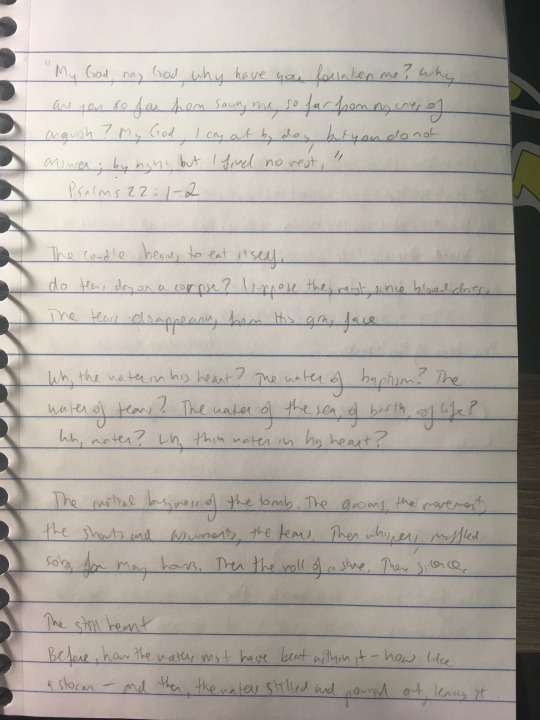 "My God, my God, why have you forsaken me? Why
are you so far from saving me, so far from my cries of
anguish? My God, I cry out by day, but you do not
answer; by night, but I find no rest."
Psalms 22:1-2
The candle begins to eat itself.
do tears dry on a corpse? I suppose they must, since blood dries.
The tears disappearing from his gray face
Why the water in his heart? The water of baptism? The
water of tears? The water of the sea, of birth, of life?
Why, water? Why this water in his heart?
The initial business of the tomb. The groans, the movement,
the shouts and arguments, the tears. Then whispers, muffled
sobs, for many hours. Then the roll of a stone. Then silence.
The still heart
Before, how the waters must have beat within it - how like
a storm - and then, the waters stilled and poured out, leaving it